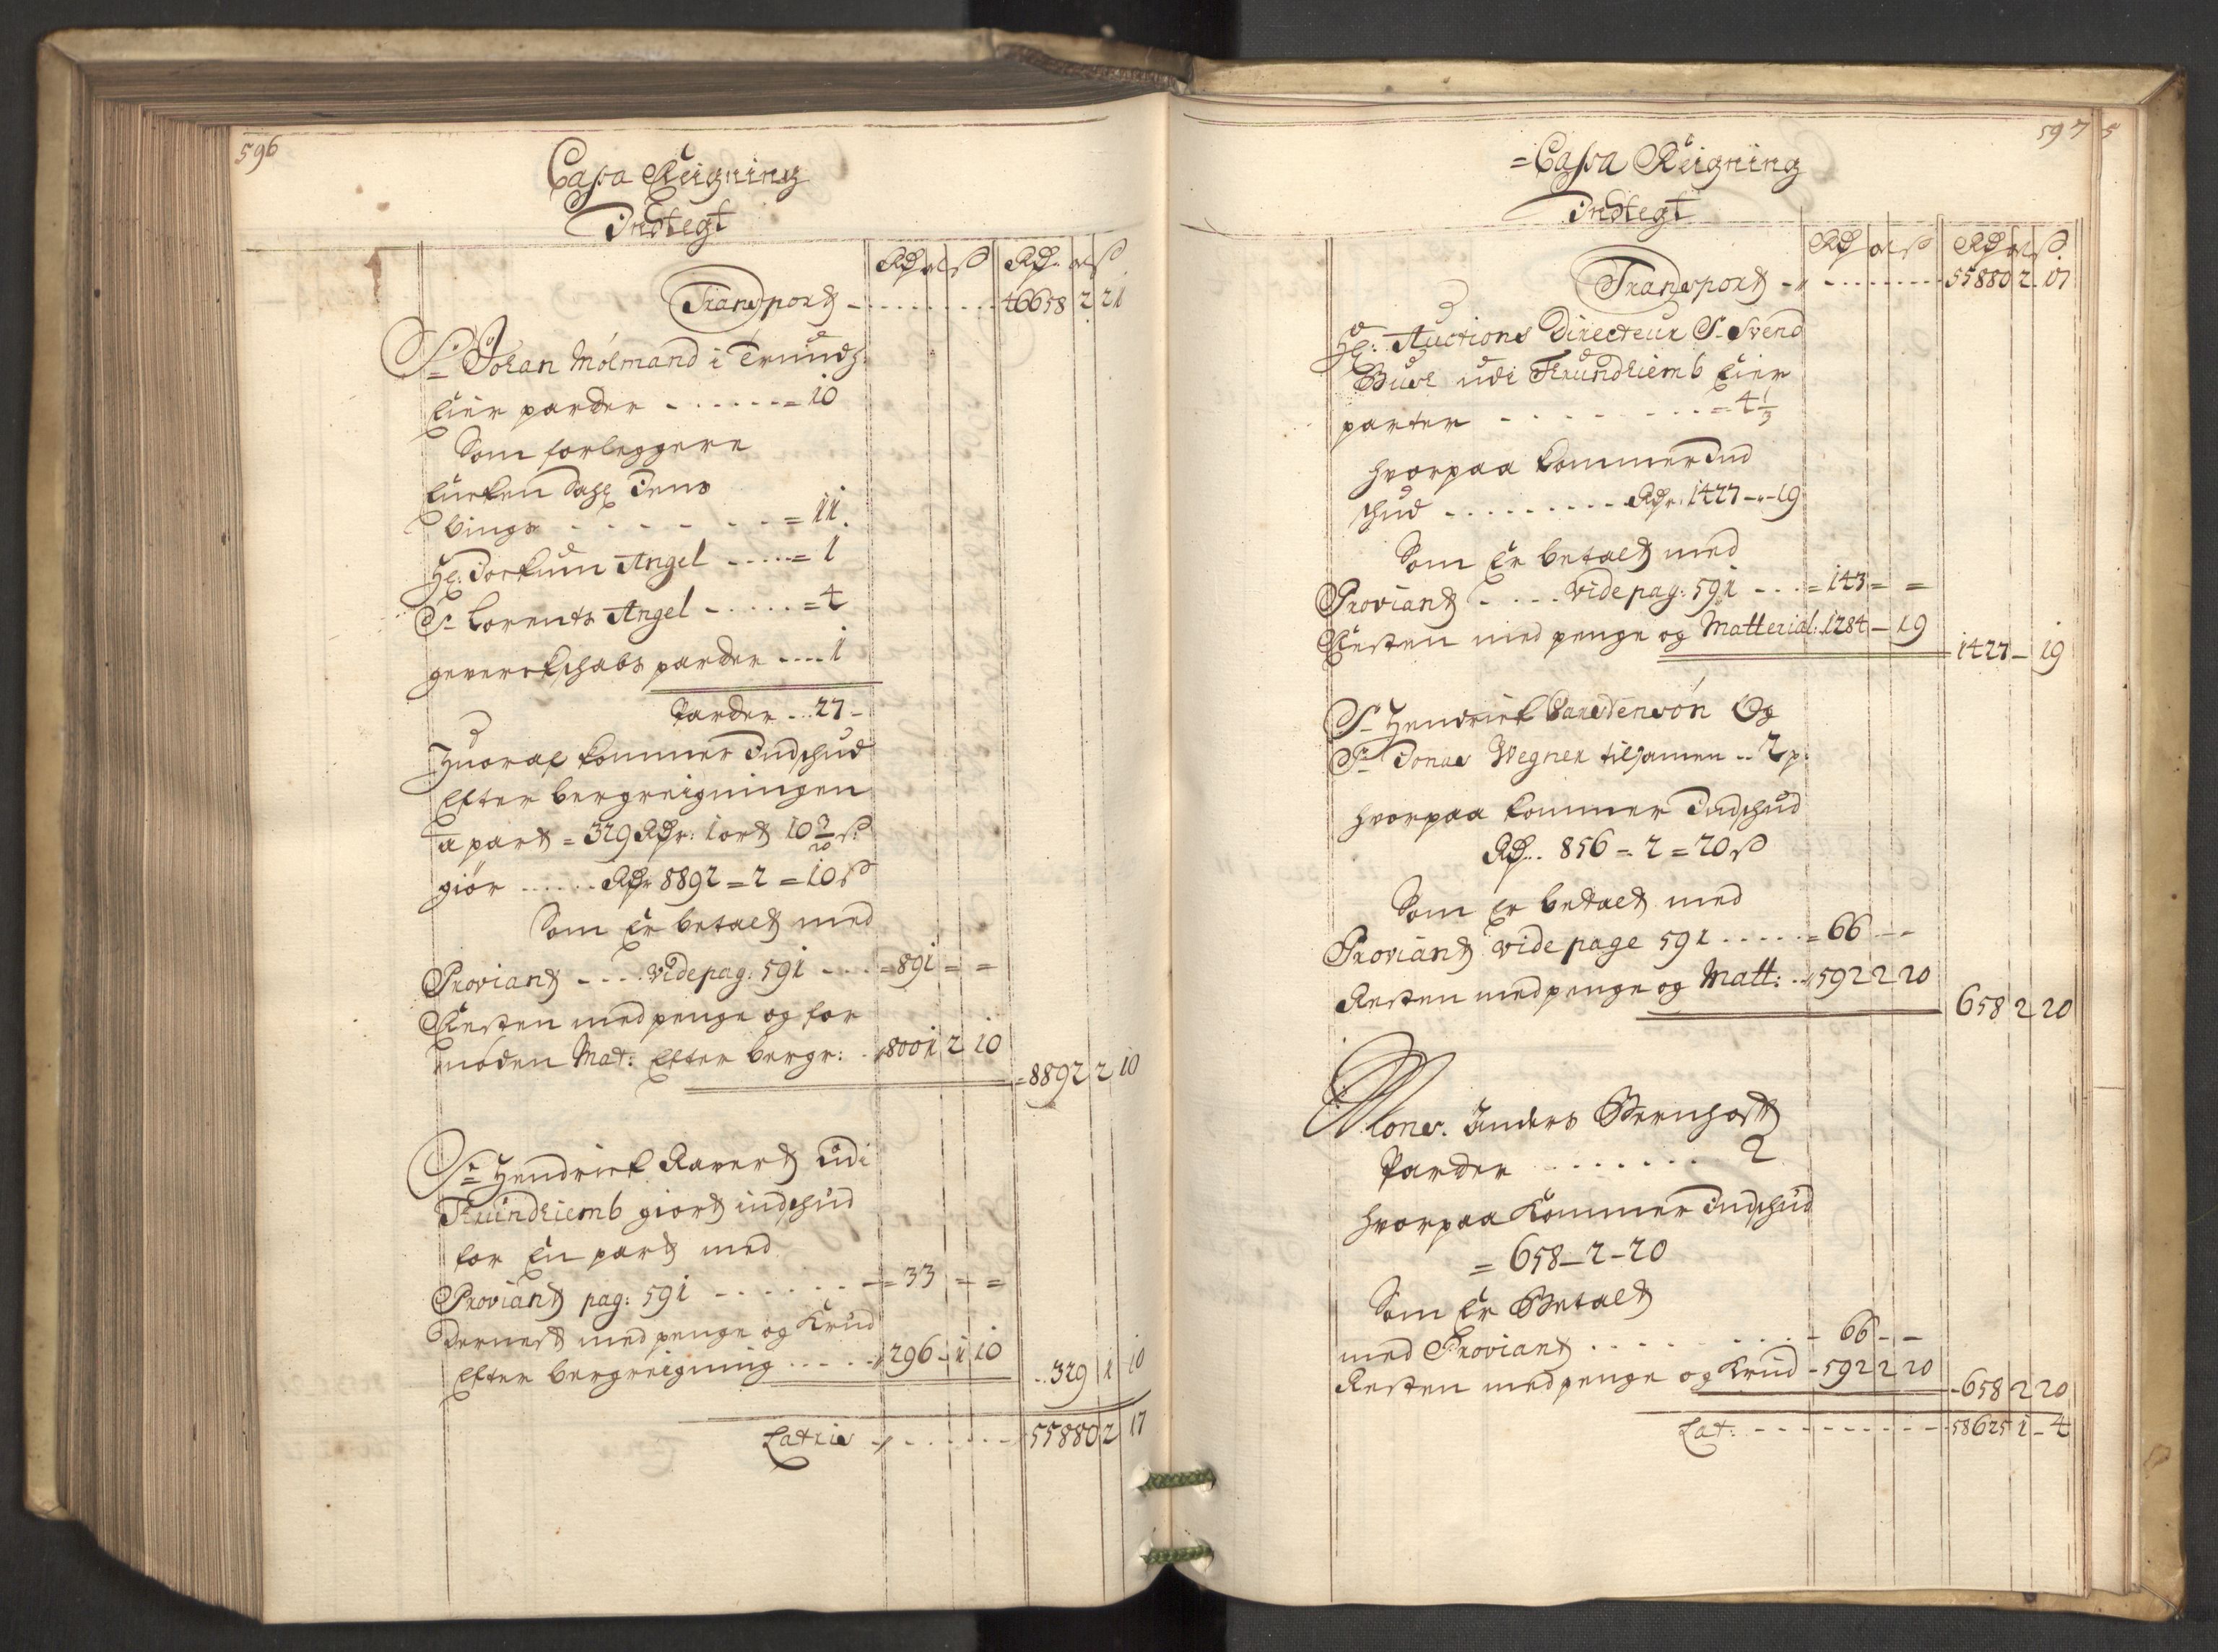 596
Cassa Reigning
Indtegt
Rdr ort ß Rdr ort ß
Transport - - - - - - - 46658 2 21
Sr Johan Mölmand i Trundh:
Eier parder - - - - - - = 10
Som forleggere
Enken Sahl Jens
Bings - - - - - - = 11.
Hl: Jochum Angel - - - - = 1
Sr Lorents Angel - - - - - = 4
geverckschabs parder - - - - 1
Parder - - 27 -
Huoraf kommer Indschud
Efter bergreigningen
a part = 329 Rdr: 1 ort 10 9/20 ß
giör - - - - - Rdr 8892 = 2 = 10 ß
Som Er betalt med
Proviant - - - - vide pag: 591 - - - = 891 = =
Resten med penge og for
nöden Mat: Efter bergr: - 8001 2 10
= 8892 2 10
Sr Hendrick Ravert udi
Trundhiemb giort indschud
for En part med
Proviant pag: 591 - - - - - - = 33 = =
Dernest med penge og Krud
Efter bergreigning - - - - 296 - 1 10
- - 329 1 10
Latris - - - - - - - 55880 2 17
597
5
= Cassa Reigning
Indtegt
Rdr ort ß Rdr ort ß
Transport - - - - - - - - 55880 2 17
Hl: Auctions Directeur Sr Svend
Busk udi Trundhiemb Eier
parter - - - - - - - - = 4 1/3
hvorpaa kommer Ind
schud - - - - - - - - - Rdr: 1427 - „ - 19
Som Er betalt med
Proviant - - - - vide pag: 591 - - - = 143 = =
Resten med penge og Matterial: 1284 - 19
1427 - 19
Sr Hendrick Carstensön Og
Sr Jonas Wegner tilsamen - - 2 p:
hvorpaa kommer Indschud
Rdr. 856 = 2 = 20 ß
Som Er betalt med
Proviant vide page 591 - - - - - = 66 - -
Resten med penge og Matt: - - 592 2 20
658 2 20
Mons. Anders Bernhoft
Parder - - - - - - - 2
hvorpaa Kommer Indschud
= 658 - 2 - 20
Som Er Betalt
med Proviant - - - - - - - - 66 - -
Resten med penge og Krud - 592 2 20
- 658 2 20
Lat: - - - - - - - - - 58625 1 - 4